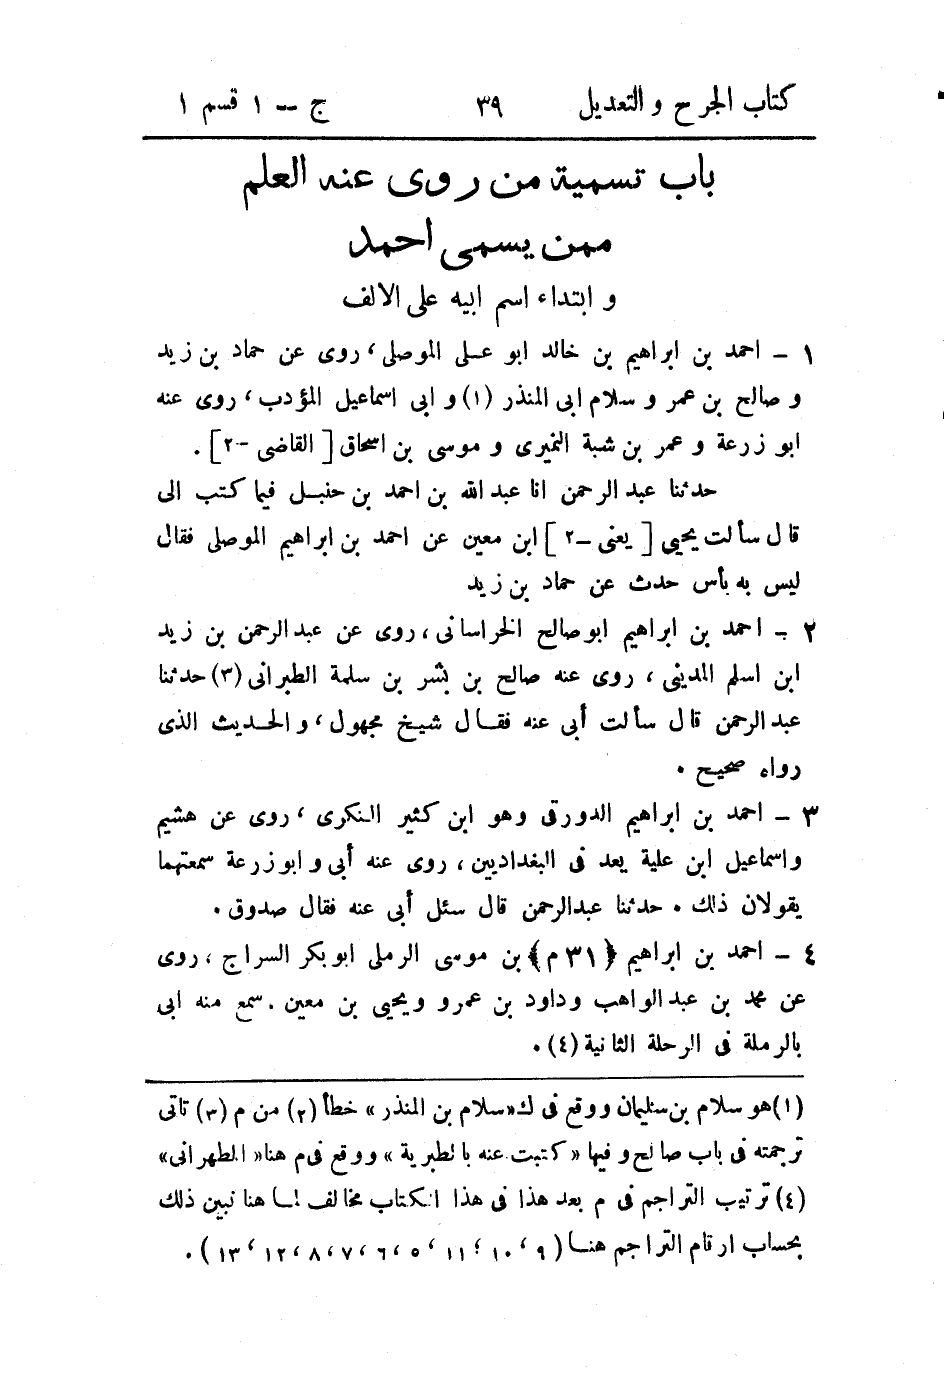 كتاب الجرح و التعديل ٣٩ ج – ١ قسم ١
باب تسمية من روى عنه العلم
ممن يسمى احمد
و ابتداء اسم ابيه على الالف
١ – احمد بن ابراهيم بن خالد ابو على الموصلى، روى عن حماد بن زيد
و صالح بن عمر و سلام ابى المنذر (١) و ابى اسماعيل المؤدب، روى عنه
ابو زرعة و عمر بن شبة النميرى و موسى بن اسحاق [ القاضى -٢] .
حدثنا عبد الرحمن انا عبد الله بن احمد بن حنبل فيما كتب الى
قال سألت يحيى [ يعنى -٢ ] ابن معين عن احمد بن ابراهيم الموصلى فقال
ليس به بأس حدث عن حماد بن زيد
٢ – احمد بن ابراهيم ابو صالح الخراسانى، روى عن عبد الرحمن بن زيد
ابن اسلم المدينى ، روى عنه صالح بن بشر بن سلمة الطبرانى (٣) حدثنا
عبد الرحمن قال سألت أبى عنه فقال شيخ مجهول، والحديث الذى
رواه صحيح .
٣ – احمد بن ابراهيم الدورقى وهو ابن كثير النكرى ، روى عن هشيم
واسماعيل ابن علية يعد فى البغداديين، روى عنه أبى و ابو زرعة سمعتهما
يقولان ذلك . حدثنا عبد الرحمن قال سئل أبى عنه فقال صدوق .
٤ – احمد بن ابراهيم ﴿٣١ م﴾ بن موسى الرملى ابو بكر السراج ، روى
عن محمد بن عبد الواهب وداود بن عمرو ويحيى بن معين . سمع منه ابى
بالرملة فى الرحلة الثانية (٤) .
(١) هو سلام بن سليمان ووقع فى ك «سلام بن المنذر» خطأ (٢) من م (٣) تاتى
ترجمته فى باب صالح و فيها « كتبت عنه بالطبرية » ووقع فى م هنا «الطهرانى»
(٤) ترتيب التراجم فى م بعد هذا فى هذا الكتاب مخالف لما هنا نبين ذلك
بحساب ارقام التراجم هنا ( ٩ ، ١٠ ، ١١ ، ٥ ، ٦ ، ٧ ، ٨ ، ١٢ ، ١٣ ) .